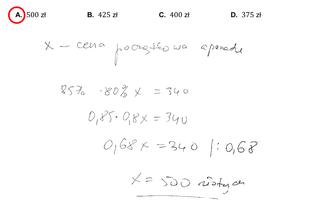 A. 500 zł B. 425 zł C. 400 zł D. 375 zł
x – cena początkowa aparatu
85% · 80% x = 340
0,85 · 0,8x = 340
0,68x = 340 /: 0,68
x = 500 złotych